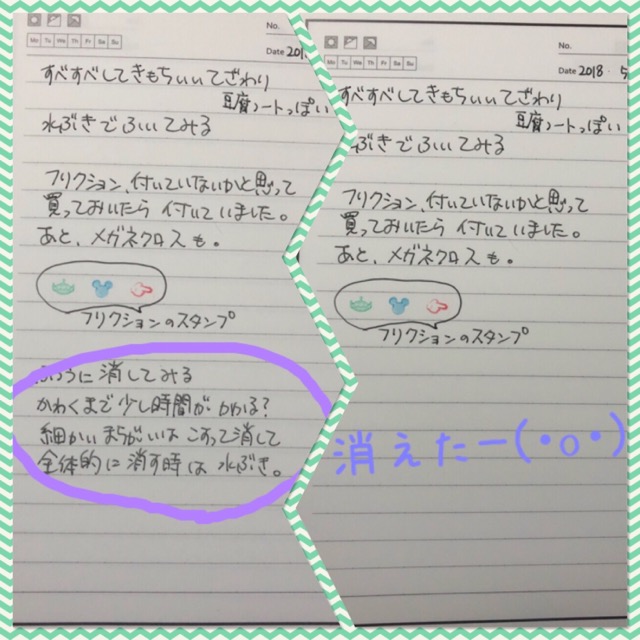 No.
Mo Tu We Th Fr Sa Su
Date 201
すべすべしてきもちいいてざわり
豆腐ノートっぽい
水ぶきでふいてみる
フリクション、付いていないかと思って
買っておいたら 付いていました。
あと、メガネクロスも。
フリクションのスタンプ
ふつうに消してみる
かわくまで少し時間がかかる?
細かいまちがいはこすって消して
全体的に消す時は水ぶき。
No.
Mo Tu We Th Fr Sa Su
Date 2018 . 5
すべすべしてきもちいいてざわり
豆腐ノートっぽい
ぶきでふいてみる
フリクション、付いていないかと思って
買っておいたら 付いていました。
あと、メガネクロスも。
フリクションのスタンプ
消えたー(・o・)